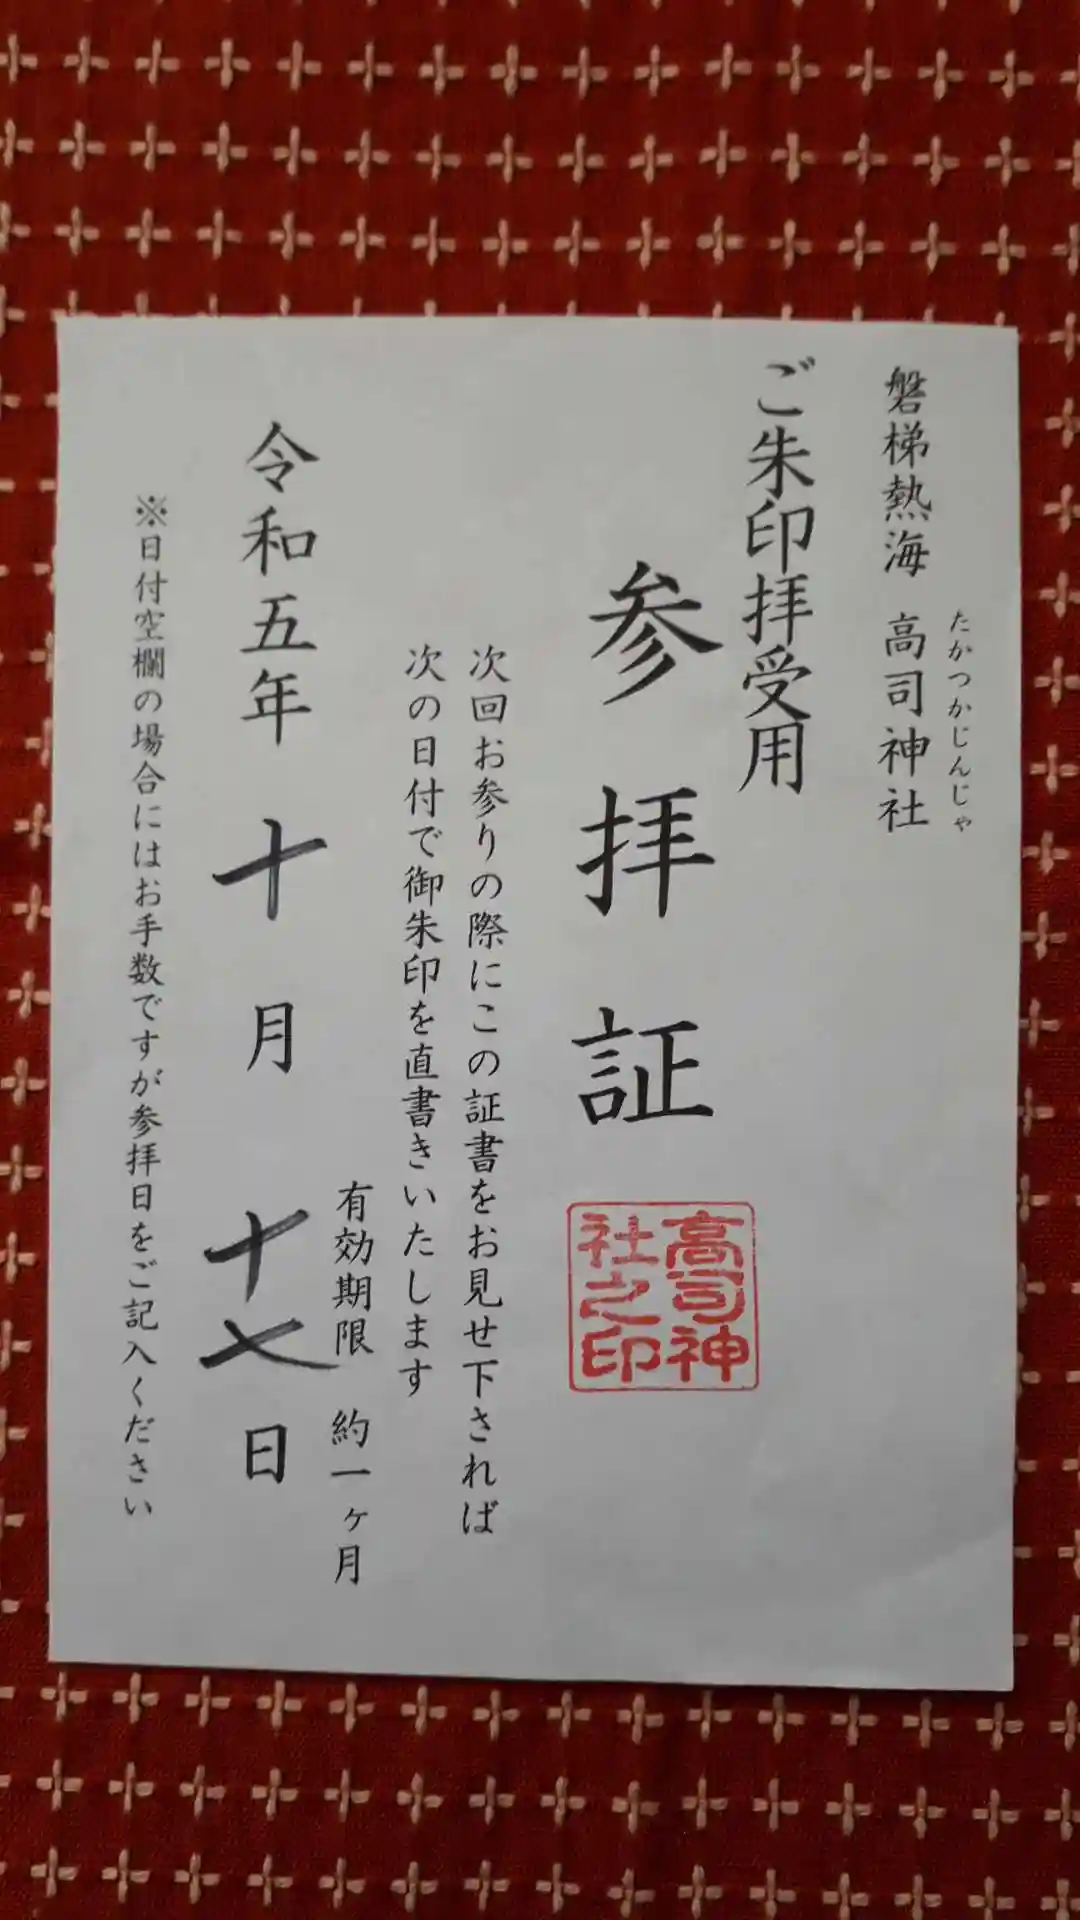 磐梯熱海 高司神社
たかつかじんじゃ
ご朱印拝受用
参拝証
高司神社之印
次回お参りの際にこの証書をお見せ下されば
次の日付で御朱印を直書きいたします
有効期限 約一ヶ月
令和五年 十月 十七日
※日付空欄の場合にはお手数ですが参拝日をご記入ください